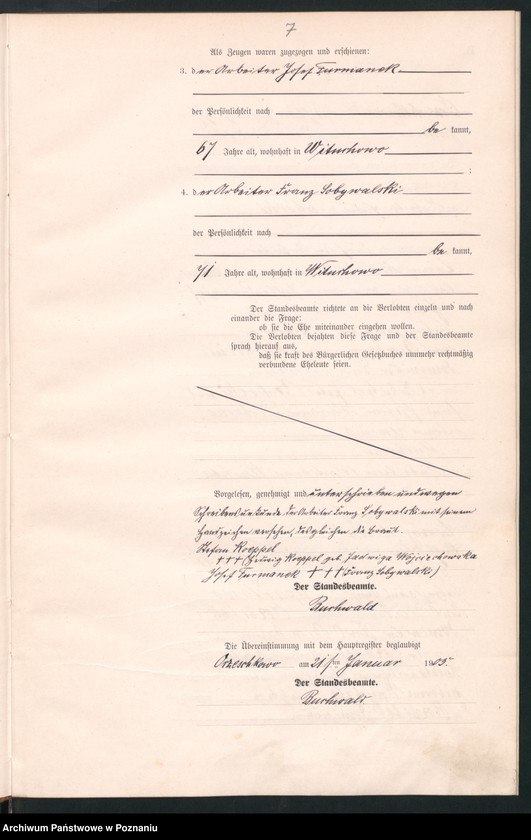 7
Als Zeugen waren zugezogen und erschienen:
3. der Arbeiter Josef Furmanek
der Persönlichkeit nach
be kannt,
67 Jahre alt, wohnhaft in Wituchowo
;
4. der Arbeiter Franz Sobywalski
der Persönlichkeit nach
be kannt,
71 Jahre alt, wohnhaft in Wituchowo
Der Standesbeamte richtete an die Verlobten einzeln und nach
einander die Frage:
ob sie die Ehe miteinander eingehen wollen.
Die Verlobten bejahten diese Frage und der Standesbeamte
sprach hierauf aus,
daß sie kraft des Bürgerlichen Gesetzbuches nunmehr rechtmäßig
verbundene Eheleute seien.
Vorgelesen, genehmigt und unterschrieben und wegen
Schreibensunkunde der Arbeiter Franz Sobywalski mit seinem
Handzeichen versehen, desgleichen die Braut.
Stefan Kreppel
+++ (Hedwig Kreppel geb. Jadwiga Wojciechowska
Josef Furmanek +++ (Franz Sobywalski)
Der Standesbeamte.
Buchwald
Die Übereinstimmung mit dem Hauptregister beglaubigt
Orzeschkowo am 21ten Januar 1905
Der Standesbeamte.
Buchwald.
Archiwum Państwowe w Poznaniu